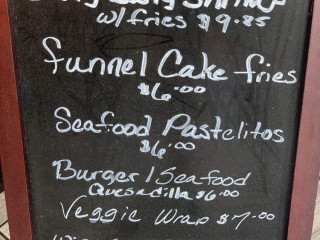 Shrimp
w/fries $9.85
funnel Cake fries
$6.00
Seafood Pastelitos
$6.00
Burger / Seafood
Quesadilla $6.00
Veggie Wrap $7.00